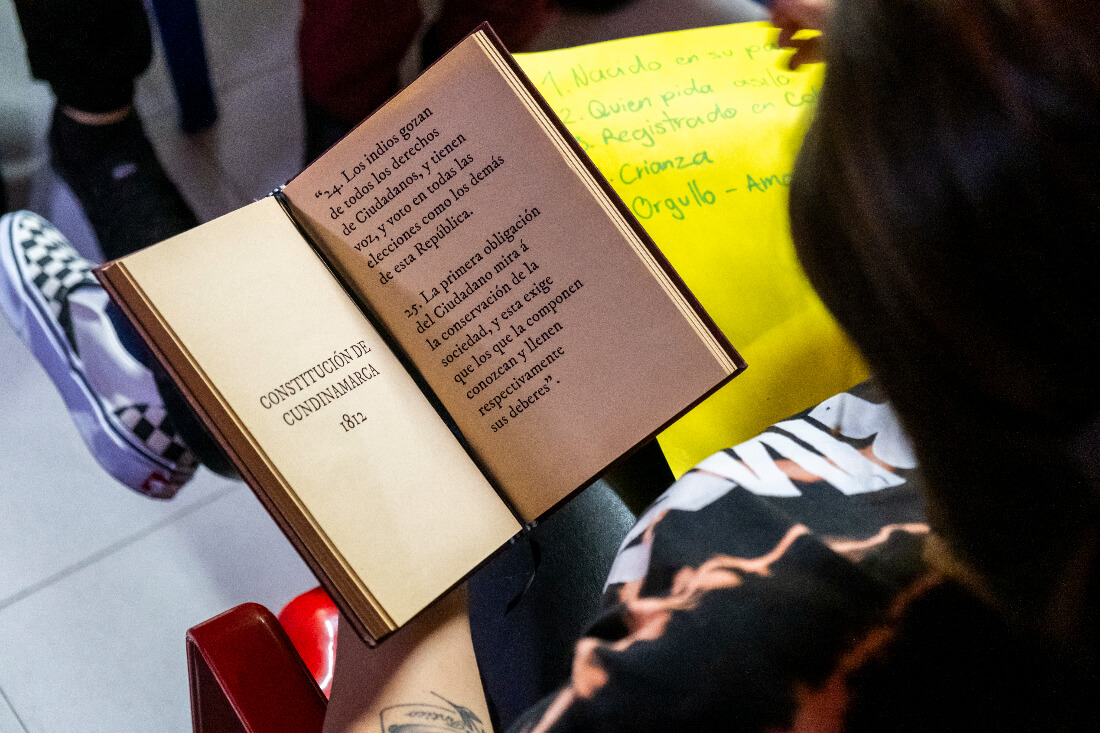 CONSTITUCIÓN DE
CUNDINAMARCA
1812
“24. Los indios gozan
de todos los derechos
de Ciudadanos, y tienen
voz, y voto en todas las
elecciones como los demás
de esta República.
25. La primera obligación
del Ciudadano mira á
la conservación de la
sociedad, y esta exige
que los que la componen
conozcan y llenen
respectivamente
sus deberes”.
1. Nacido en su
2. Quien pida asilo
Registrado en
Crianza
Orgullo -